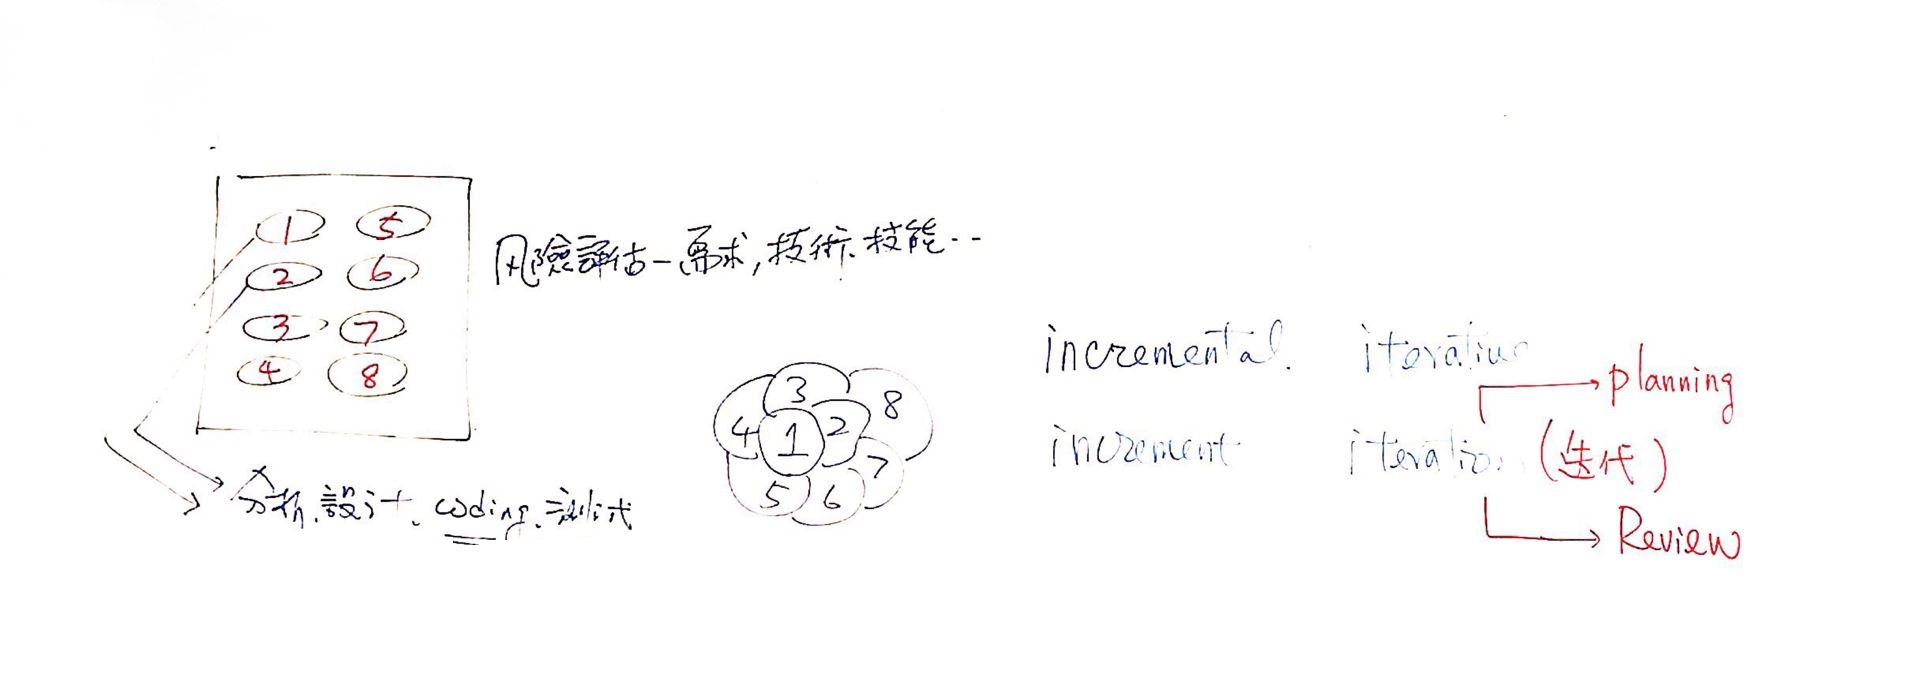 1 5
2 6
3 7
4 8
風險評估-需求,技術、技能..
分析、設計、coding、測試
3
8
4
1
2
7
5
6
incremental. iterative
planning
increment iteration (迭代)
Review